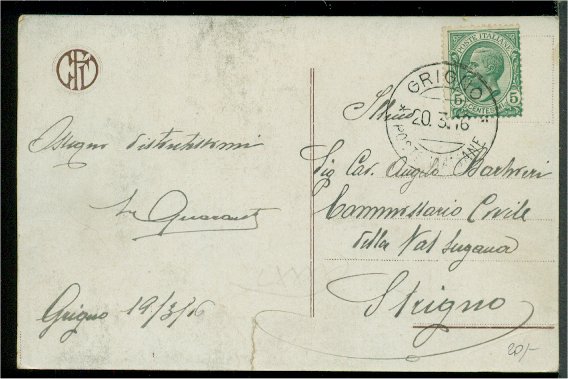 POSTE ITALIANE
5 CENTES 5
GRIGNO
* 20.3.16 *
POSTE ITALIANE
Ossequi distintissimi
Grigno 19/3/16
Sig Cav. Angelo Barbieri
Commissario Civile
della Val Sugana
Strigno
20/-